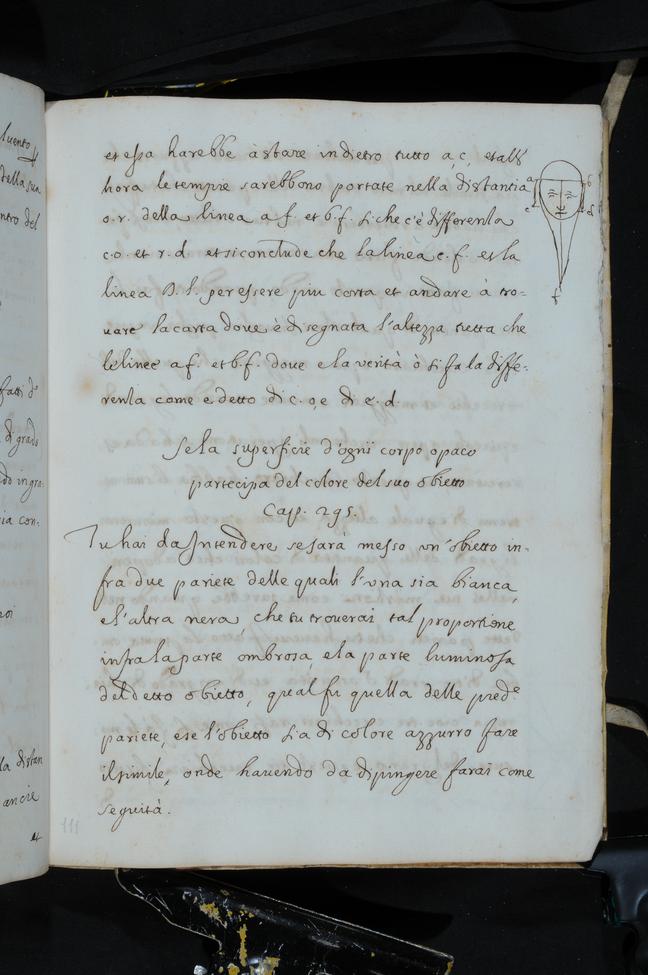 et essa harebbe à stare indietro tutto a, c, et all'
hora le tempie sarebbono portate nella distantia
o. r. della linea a f. et b. f. si che c'è differenza
c. o. et r. d. et si conclude che la linea c. f. et la
linea D. f. per essere piu corta et andare à tro=
uare la carta doue è disegnata l'altezza tutta che
le linee a f. et b. f. doue e la verità ò si fa la diffe=
renza come e detto di c. o, e di r. d.
Se la superficie d'ogni corpo opaco
partecipa del colore del suo obietto
Cap. 295.
Tu hai da Intendere se sarà messo un'obietto in=
fra due pariete delle quali l'una sia bianca,
e l'altra nera, che tu trouerai tal proportione
infra la parte ombrosa, e la parte luminosa
del detto obietto, qual fu quella delle pred.e
pariete, e se l'obietto sia di colore azzurro fare
il simile, onde hauendo da dipingere farai come
seguità.
111
luento
della sua
ntro del
fatti d'
di grado
do ingra=
ia con=
oi
la distan
ancie
a
b
c
d
f